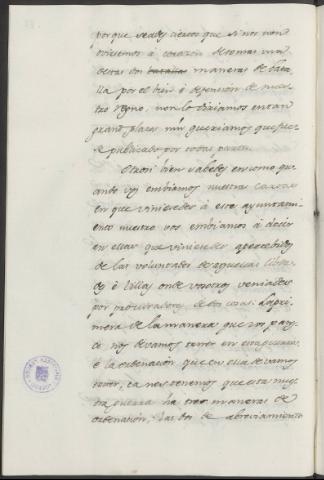 porque sedes ciertos que si nos non
oviesemos á corazon de tomar una
de estas dos batallas maneras de bata
lla por el bien é defension de nues
tro regno, non lo diriamos en tan
grand plaza nin queriamos que fue
se publicado por todas partes.
Otrosi bien sabedes en como qu
ando vos embiamos nuestras cartas
en que viniesedes á este ayuntami
ento nuestro vos embiamos á decir
en ellas que viniesedes apercebidos
de las voluntades de aquellas cibda
des é villas onde vosotros veniades
por procuradores de dos cosas: La pri
mera de la manera que vos pares
ce nos devamos tener en esta guerra
é la ordenacion que en ella devamos
tener, ca nos tenemos que esta nues
tra guerra ha tres maneras de
ordenacion, las dos de abreviamiento